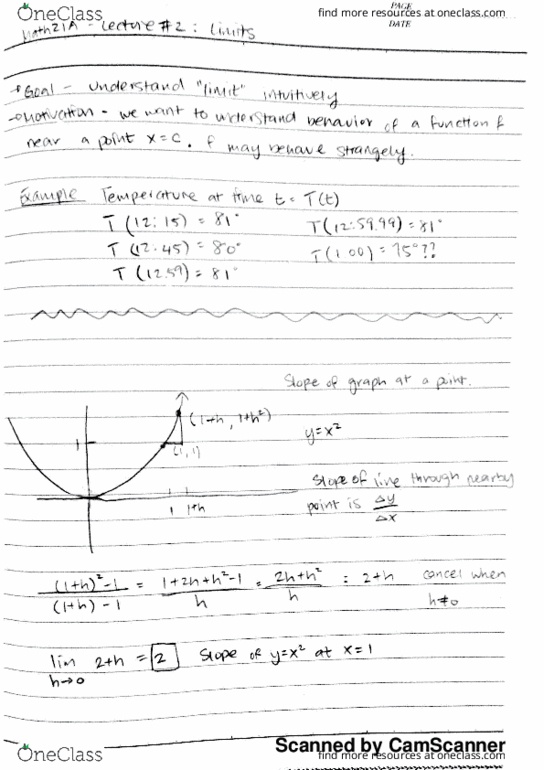 OneClass
find more resources at oneclass.com
PAGE
DATE
Math 21A - Lecture #2 : Limits
Goal - understand "limit" intuitively
Motivation - we want to understand behavior of a function f
near a point x=c. f may behave strangely.
Example Temperature at time t = T(t)
T(12:15) = 81°
T(12:59.99) = 81°
T(12:45) = 80°
T(1:00) = 75°??
T(12:59) = 81°
Slope of graph at a point.
(1+h, 1+h²)
y=x²
1
(1,1)
Slope of line through nearby
point is Δy/Δx
1 1+h
(1+h)²-1 / (1+h)-1 = 1+2h+h²-1 / h = 2h+h² / h = 2+h cancel when
h≠0
lim 2+h = 2 Slope of y=x² at x=1
h→0
Scanned by CamScanner
OneClass
find more resources at oneclass.com